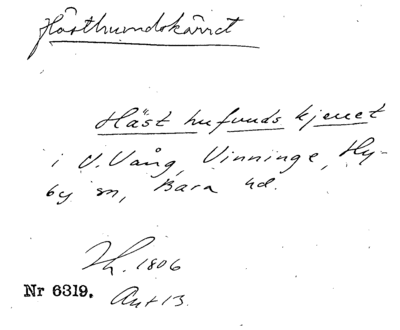 Hästhuvudskärret
Häst hufvuds kjerret
i V. Vång, Vinninge, Hy-
by sn, Bara hd.
Th. 1806
Nr 6319. Avt 13.